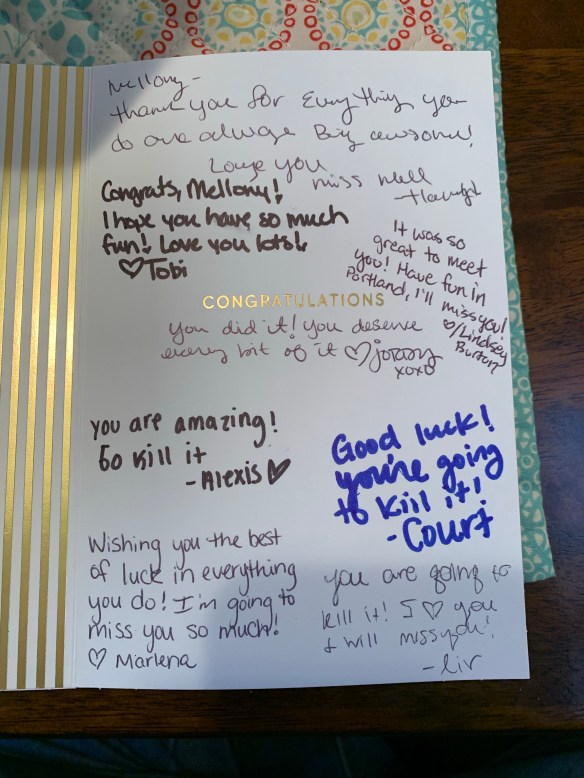 Mellony-
thank you for Everything you
do and always Being awesome!
Love you
miss Mell
Congrats, Mellony!
I hope you have so much
fun! Love you lots!
♡Tobi
It was so
great to meet
you! Have fun in
Portland, I'll miss you!
♡/Lindsey
Burton
CONGRATULATIONS
you did it! you deserve
every bit of it ♡
xoxo
you are amazing!
Go kill it
-Alexis♡
Good luck!
you're going
to kill it!
-Court
Wishing you the best
of luck in everything
you do! I'm going to
miss you so much!
♡ Marlena
you are going to
kill it! I ♡ you
& will miss you!
-Liv